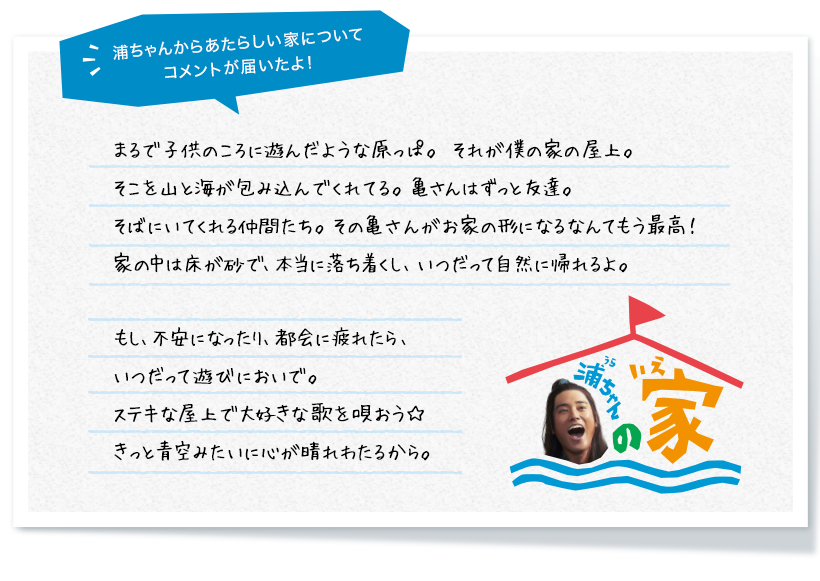 浦ちゃんからあたらしい家について
コメントが届いたよ!
まるで子供のころに遊んだような原っぱ。 それが僕の家の屋上。
そこを山と海が包み込んでくれてる。亀さんはずっと友達。
そばにいてくれる仲間たち。その亀さんがお家の形になるなんてもう最高!
家の中は床が砂で、本当に落ち着くし、いつだって自然に帰れるよ。
もし、不安になったり、都会に疲れたら、
いつだって遊びにおいで。
ステキな屋上で大好きな歌を唄おう☆
きっと青空みたいに心が晴れわたるから。
うら
浦ちゃん
の
いえ
家